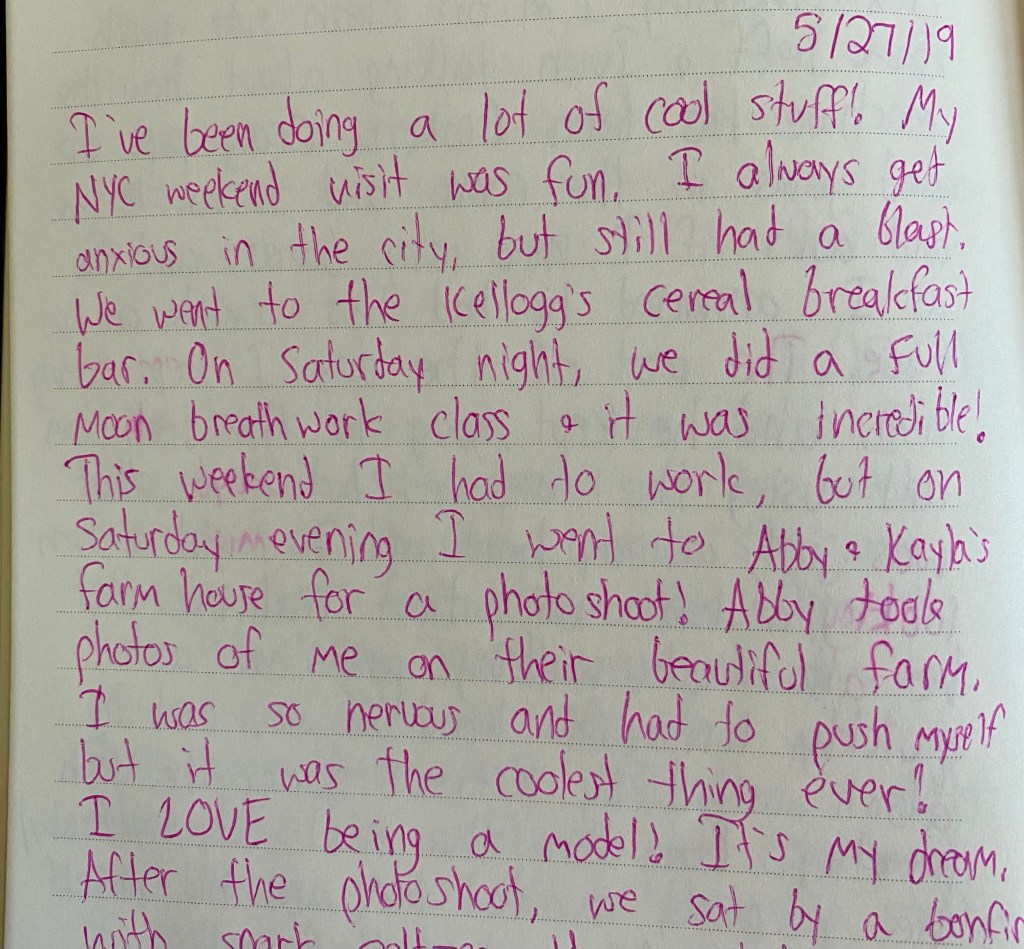 5/27/19
I've been doing a lot of cool stuff! My
NYC weekend visit was fun. I always get
anxious in the city, but still had a blast.
We went to the Kellogg's cereal breakfast
bar. On Saturday night, we did a Full
Moon breathwork class & it was incredible!
This weekend I had to work, but on
Saturday evening I went to Abby & Kayla's
farm house for a photoshoot! Abby took
photos of me on their beautiful farm.
I was so nervous and had to push myself
but it was the coolest thing ever!
I LOVE being a model! It's my dream.
After the photoshoot, we sat by a bonfir
with